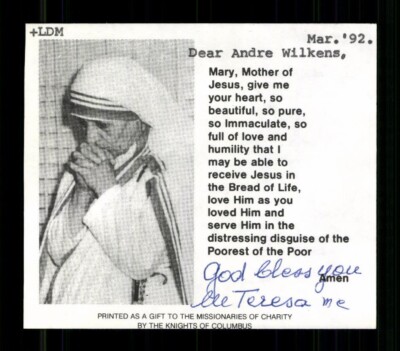 +LDM
Mar.'92.
Dear Andre Wilkens,
Mary, Mother of
Jesus, give me
your heart, so
beautiful, so pure,
so Immaculate, so
full of love and
humility that I
may be able to
receive Jesus in
the Bread of Life,
love Him as you
loved Him and
serve Him in the
distressing disguise of the
Poorest of the Poor
God bless you
Amen
M Teresa mc
PRINTED AS A GIFT TO THE MISSIONARIES OF CHARITY
BY THE KNIGHTS OF COLUMBUS